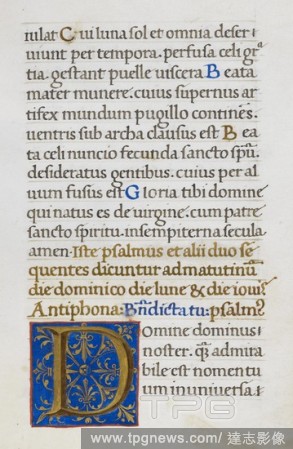 iulat Cui luna sol et omnia deser i
uiunt per tempora. perfusa celi grā
tia. gestant puelle uiscera Beata
mater munere. cuius supernus ar
tifex mundum pugillo continēs.
uentris sub archa clausus est Be
ata celi nuncio fecunda sancto spū.
desideratus gentibus. cuius per al
uum fusus est Gloria tibi domine
qui natus es de uirgine. cum patre
sancto spiritu. in sempiterna secula
amen. Iste psalmus et alii duo se
quentes dicuntur ad matutinū
die dominico die lune & die iouis
Antiphona: Bn̄dicta tu: psalm9
Domine dominus
noster. qꝫ admira
bile est nomen tu
um in uniuersa
TPG
www.tpgnews.com / 達志影像